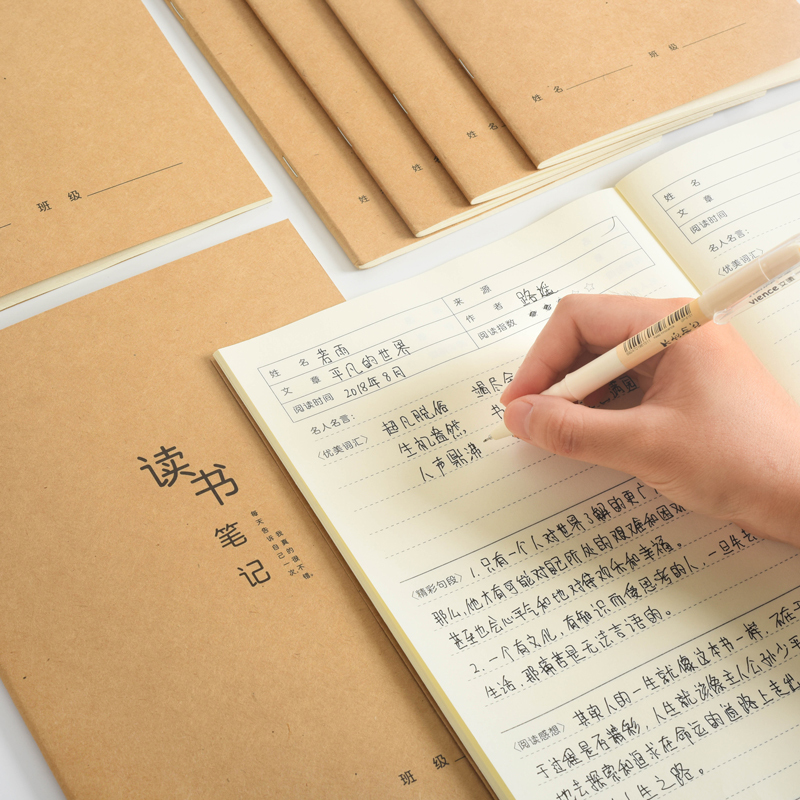 班 级
姓
姓
姓 名
姓 名
班 级
读书
笔记
每天告诉自己一次,
我真的很不错。
班 级
姓 名 若雨
文 章 平凡的世界
阅读时间 2018年8月
来 源
作 者 路遥
阅读指数
名人名言:
〈优美词汇〉 超凡脱俗
生机盎然,
人声鼎沸
〈精彩句段〉 1.只有一个人对世界了解的更广
那么,他才有可能对自己所处的艰难和困
甚至也会心平气和地对待欢乐和幸福。
2.一个有文化,有知识而使思考的人,一旦失去
生活,那痛苦是无法言语的。
〈阅读感想〉 其实人的一生就像这本书一样,不在于
于过程是否精彩,人生就该像主人公孙少平
地去探索和追求在命运的道路上走出
人生之路。
姓 名
文 章
阅读时间
名人名言:
〈优美词汇〉
vience